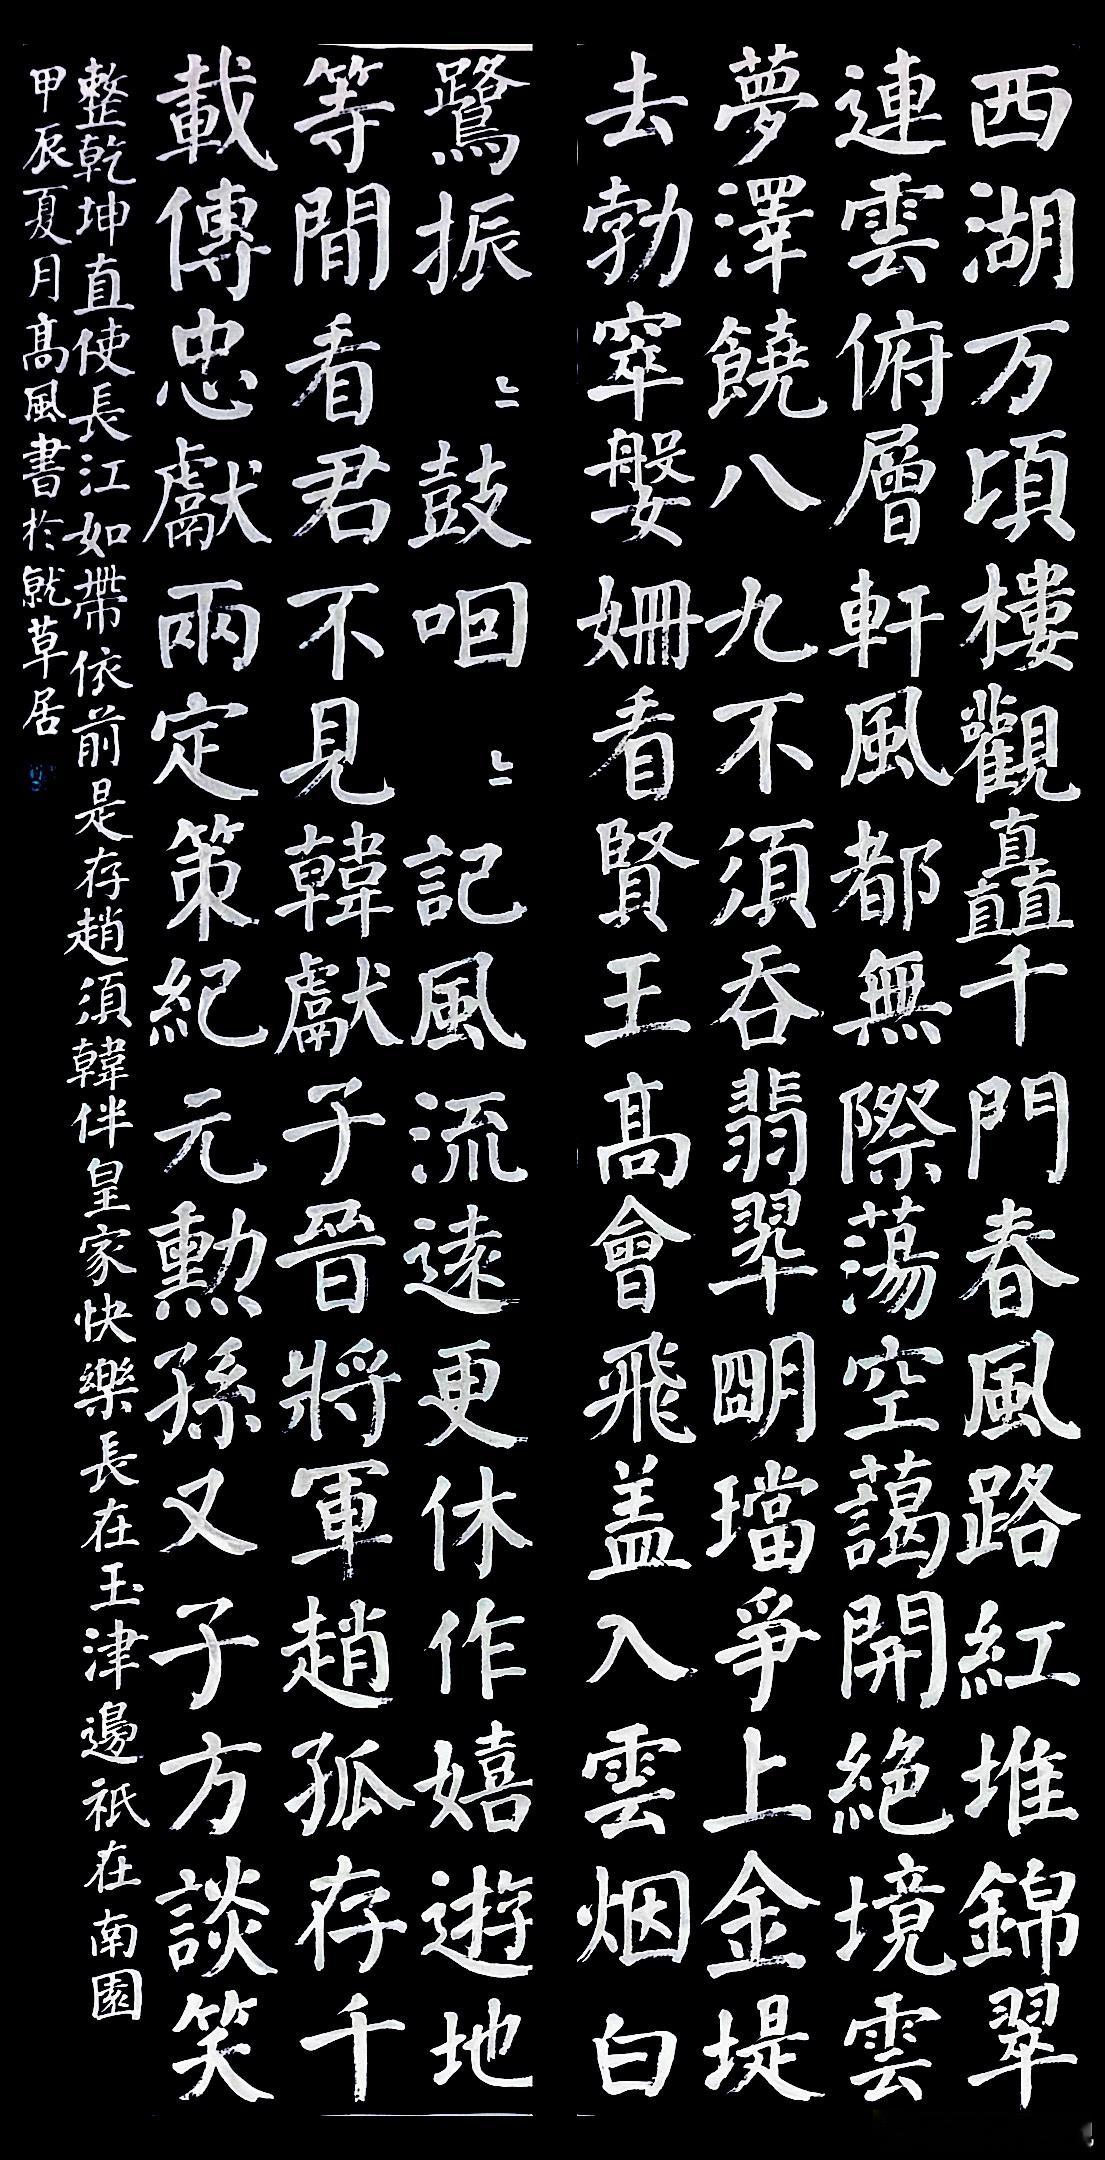 西湖万頃樓觀矗千門春風路紅堆錦翠
連雲俯層軒風都無際蕩空藹開絕境雲
夢澤饒八九不須吞翡翠朙璫爭上金堤
去勃窣媻姍看賢王髙會飛盖入雲烟白
鷺振〻鼓咽〻記風流遠更休作嬉遊地
等間看君不見韓獻子晉將軍趙孤存千
載傳忠獻兩定策紀元勳孫又子方談笑
整乾坤直使長江如帶依前是存趙須韓伴皇家快樂長在玉津邊祇在南園
甲辰夏月髙風書於就草居